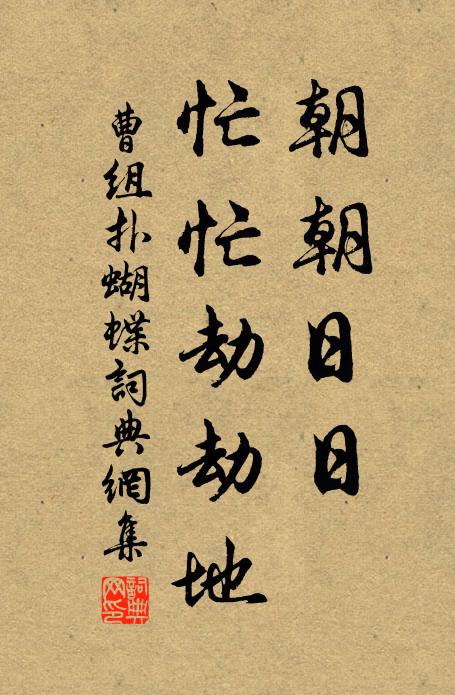 朝朝日日
忙忙劫劫地
曹组扑蝴蝶詞典網集
詞典网印